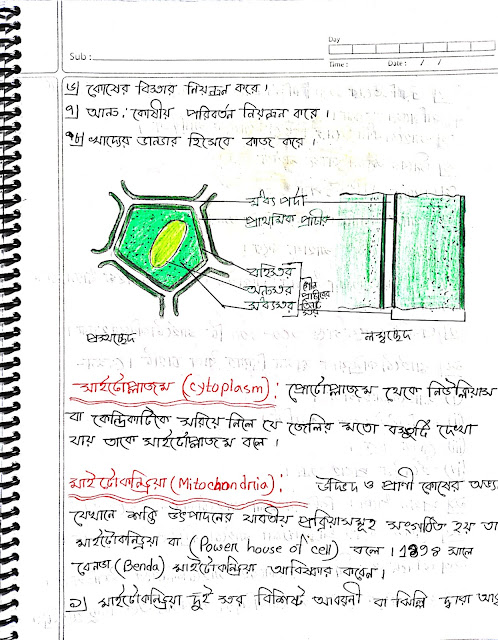 Day
Sub :
Time : Date : / /
৬] কোষের বিস্তার নিয়ন্ত্রন করে।
৭] আন্তঃকোষীয় পরিবর্তন নিয়ন্ত্রন করে।
৮] খাদ্যের ভান্ডার হিসেবে কাজ করে।
মধ্য পর্দা
প্রাথমিক প্রাচীর
বহিস্তর
অন্তস্তর
মধ্যস্তর
প্রস্থচ্ছেদ
লম্বচ্ছেদ
সাইটোপ্লাজম (cytoplasm) : প্রোটোপ্লাজম থেকে নিউক্লিয়াস
বা কেন্দ্রিকাটিকে সরিয়ে নিলে যে জেলির মতো বস্তুটি দেখা
যায় তাকে সাইটোপ্লাজম বলে।
মাইটোকন্ড্রিয়া (Mitochondria) : উদ্ভিদ ও প্রাণী কোষের অভ্য
যেখানে শক্তি উৎপাদনের যাবতীয় প্রক্রিয়াসমূহ সংগঠিত হয় তা
মাইটোকন্ড্রিয়া বা (Power house of cell) বলে। 1898 সালে
বেনডা (Benda) মাইটোকন্ড্রিয়া আবিষ্কার করেন।
১] মাইটোকন্ড্রিয়া দুই স্তর বিশিষ্ট আবরণী বা ঝিল্লি দ্বারা